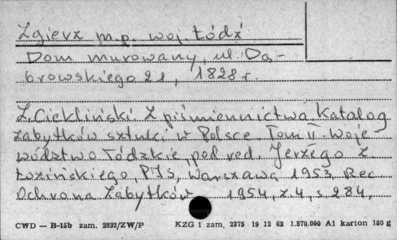 Zgierz m.p. woj. Łódź
Dom murowany, ul. Dą-
browskiego 21, 1828 r.
Z. Ciekliński. Z piśmiennictwa. Katalog
zabytków sztuki w Polsce Tom II. Woje
wództwo Łódzkie, pod red. Jerzego Z.
Łozińskiego, PIS, Warszawa 1953, Rec
Ochrona Zabytków 1954, z. 4, s. 284,
CWD — B-15b zam. 2832/ZW/P KZG 1 zam. 2375 19 12 62 1.570.000 A1 karton 180 g